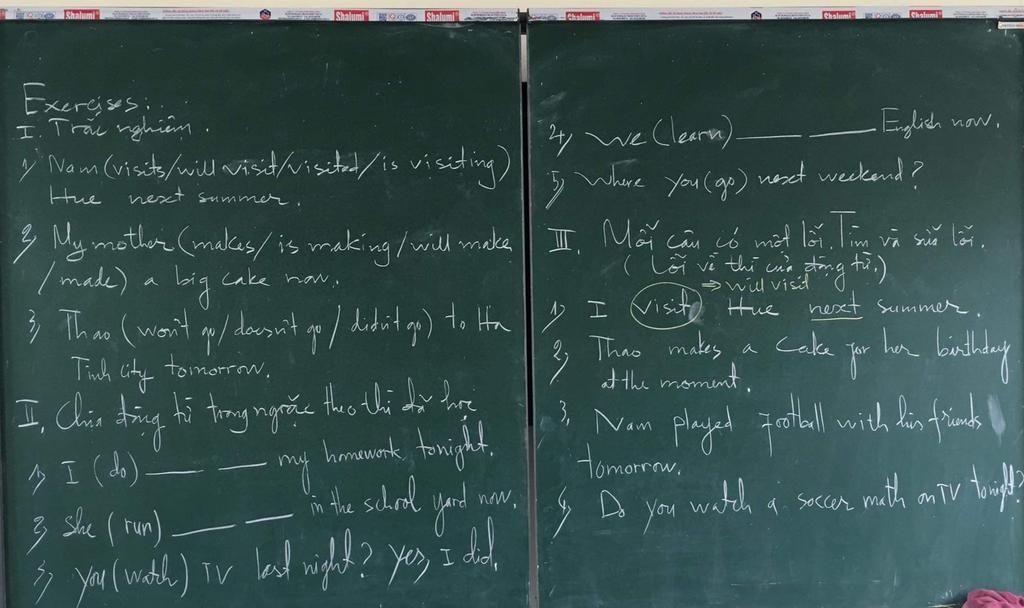 Shalumi Shalumi Shalumi Shalumi Shalumi
Exercises:
I. Trắc nghiệm.
1) Nam (visits/will visit/visited/is visiting)
Hue next summer.
2) My mother (makes/is making/will make
/made) a big cake now.
3) Thao (won't go/doesn't go/didn't go) to Ha
Tinh city tomorrow.
II. Chia động từ trong ngoặc theo thì đã học
1) I (do) ___ ___ my homework tonight.
2) She (run) ___ ___ in the school yard now.
3) you (watch) TV last night? Yes, I did.
4) We (learn) ___ ___ English now.
5) Where you (go) next weekend?
III. Mỗi câu có một lỗi. Tìm và sửa lỗi.
(Lỗi về thì của động từ.)
⇒ will visit
1) I visit Hue next summer.
2) Thao makes a cake for her birthday
at the moment.
3. Nam played football with his friends
tomorrow.
4) Do you watch a soccer math on TV tonight?